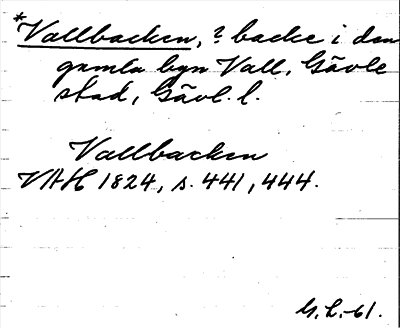 *Vallbacken, ? backe i den
gamla byn Vall, Gävle
stad, Gävl. l.
Vallbacken
VAH 1824, s. 441, 444.
G.L.-61.